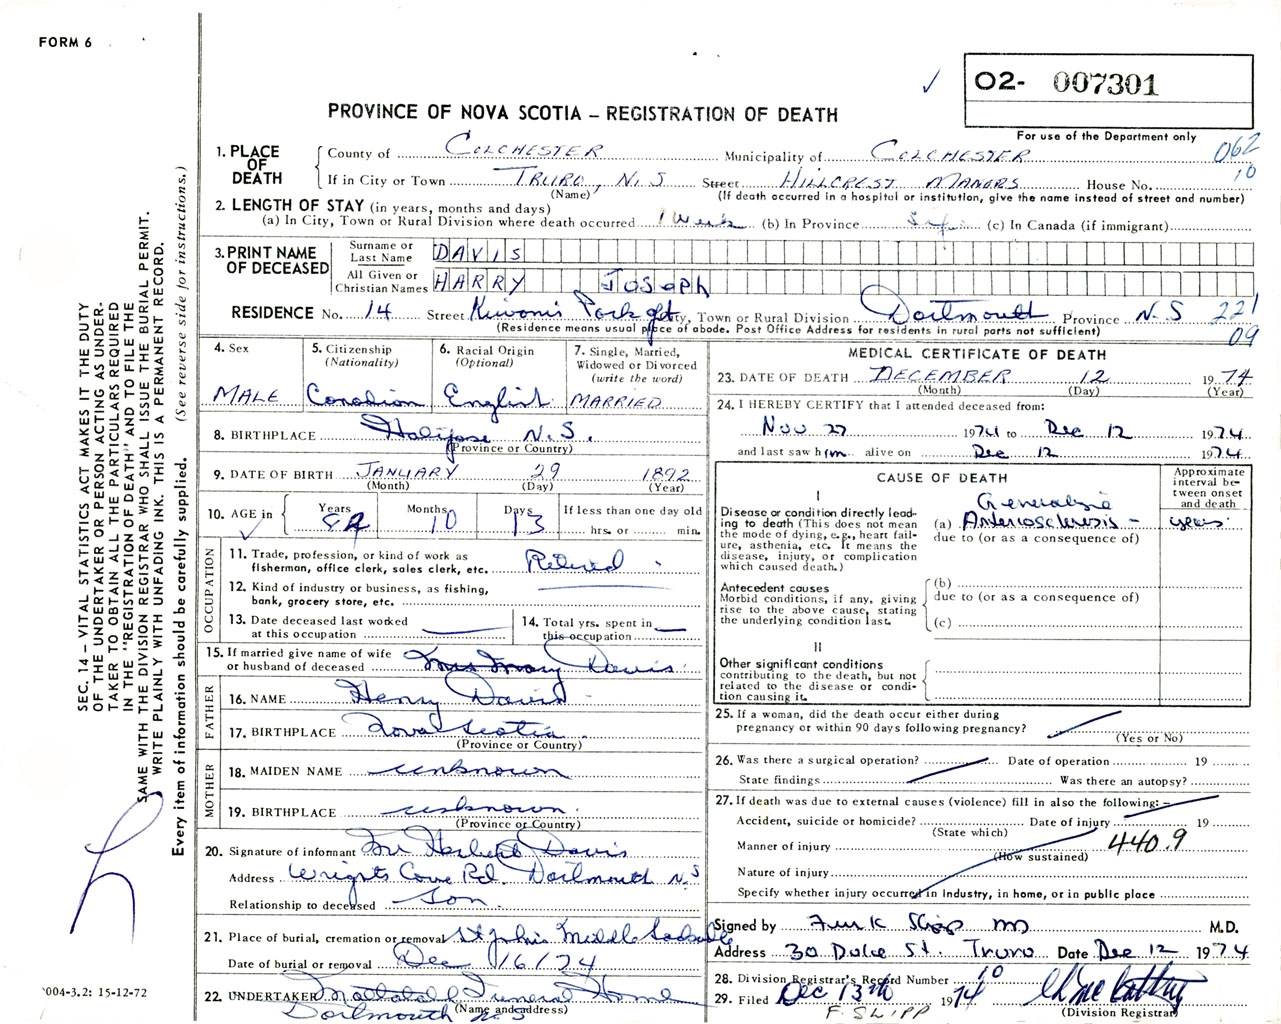 FORM 6
02- 007301
PROVINCE OF NOVA SCOTIA – REGISTRATION OF DEATH
For use of the Department only
062
10
1. PLACE OF DEATH
County of COLCHESTER Municipality of COLCHESTER
If in City or Town TRURO, N.S Street HILLCREST MANORS House No.
(Name) (If death occurred in a hospital or institution, give the name instead of street and number)
2. LENGTH OF STAY (in years, months and days)
(a) In City, Town or Rural Division where death occurred 1 Week (b) In Province Life (c) In Canada (if immigrant)
3. PRINT NAME OF DECEASED
Surname or Last Name DAVIS
All Given or Christian Names HARRY JOSEPH
RESIDENCE No. 14 Street City, Town or Rural Division Dartmouth Province N.S 221
(Residence means usual place of abode. Post Office Address for residents in rural parts not sufficient) 09
4. Sex MALE
5. Citizenship (Nationality) Canadian
6. Racial Origin (Optional) English
7. Single, Married, Widowed or Divorced (write the word) MARRIED
8. BIRTHPLACE Halifax N.S.
(Province or Country)
9. DATE OF BIRTH JANUARY 29 1892
(Month) (Day) (Year)
10. AGE in Years 82 Months 10 Days 13 If less than one day old
hrs. or min.
OCCUPATION
11. Trade, profession, or kind of work as
fisherman, office clerk, sales clerk, etc. Retired
12. Kind of industry or business, as fishing,
bank, grocery store, etc.
13. Date deceased last worked
at this occupation
14. Total yrs. spent in
this occupation
15. If married give name of wife
or husband of deceased Mrs Mary Davis
FATHER
16. NAME Henry Davis
17. BIRTHPLACE Nova Scotia
(Province or Country)
MOTHER
18. MAIDEN NAME unknown
19. BIRTHPLACE unknown
(Province or Country)
20. Signature of informant Mr Herbert Davis
Address Wrights Cove Rd. Dartmouth N.S
Relationship to deceased Son
21. Place of burial, cremation or removal St John's Middle Sackville
Date of burial or removal Dec 16/74
22. UNDERTAKER Funeral Home
(Name and address)
Dartmouth N.S
MEDICAL CERTIFICATE OF DEATH
23. DATE OF DEATH DECEMBER 12 1974
(Month) (Day) (Year)
24. I HEREBY CERTIFY that I attended deceased from:
Nov 27 1974 to Dec 12 1974
and last saw him alive on Dec 12 1974
CAUSE OF DEATH
Approximate interval between onset and death
I
Disease or condition directly leading to death (This does not mean the mode of dying, e.g., heart failure, asthenia, etc. It means the disease, injury, or complication which caused death.)
Generalized
(a) Arteriosclerosis – years
due to (or as a consequence of)
Antecedent causes
Morbid conditions, if any, giving rise to the above cause, stating the underlying condition last.
(b)
due to (or as a consequence of)
(c)
II
Other significant conditions
contributing to the death, but not related to the disease or condition causing it.
25. If a woman, did the death occur either during
pregnancy or within 90 days following pregnancy?
(Yes or No)
26. Was there a surgical operation? Date of operation 19
State findings Was there an autopsy?
27. If death was due to external causes (violence) fill in also the following:
Accident, suicide or homicide? Date of injury 19
(State which)
Manner of injury 440.9
(How sustained)
Nature of injury
Specify whether injury occurred in industry, in home, or in public place
Signed by M.D.
Address 30 Duke St. Truro Date Dec 12 1974
28. Division Registrar's Record Number 10
29. Filed Dec 13th 1974
F. SLIPP
(Division Registrar)
SEC. 14 – VITAL STATISTICS ACT MAKES IT THE DUTY
OF THE UNDERTAKER OR PERSON ACTING AS UNDER-
TAKER TO OBTAIN ALL THE PARTICULARS REQUIRED
IN THE "REGISTRATION OF DEATH" AND TO FILE THE
SAME WITH THE DIVISION REGISTRAR WHO SHALL ISSUE THE BURIAL PERMIT.
WRITE PLAINLY WITH UNFADING INK. THIS IS A PERMANENT RECORD.
Every item of information should be carefully supplied. (See reverse side for instructions.)
004-3.2: 15-12-72